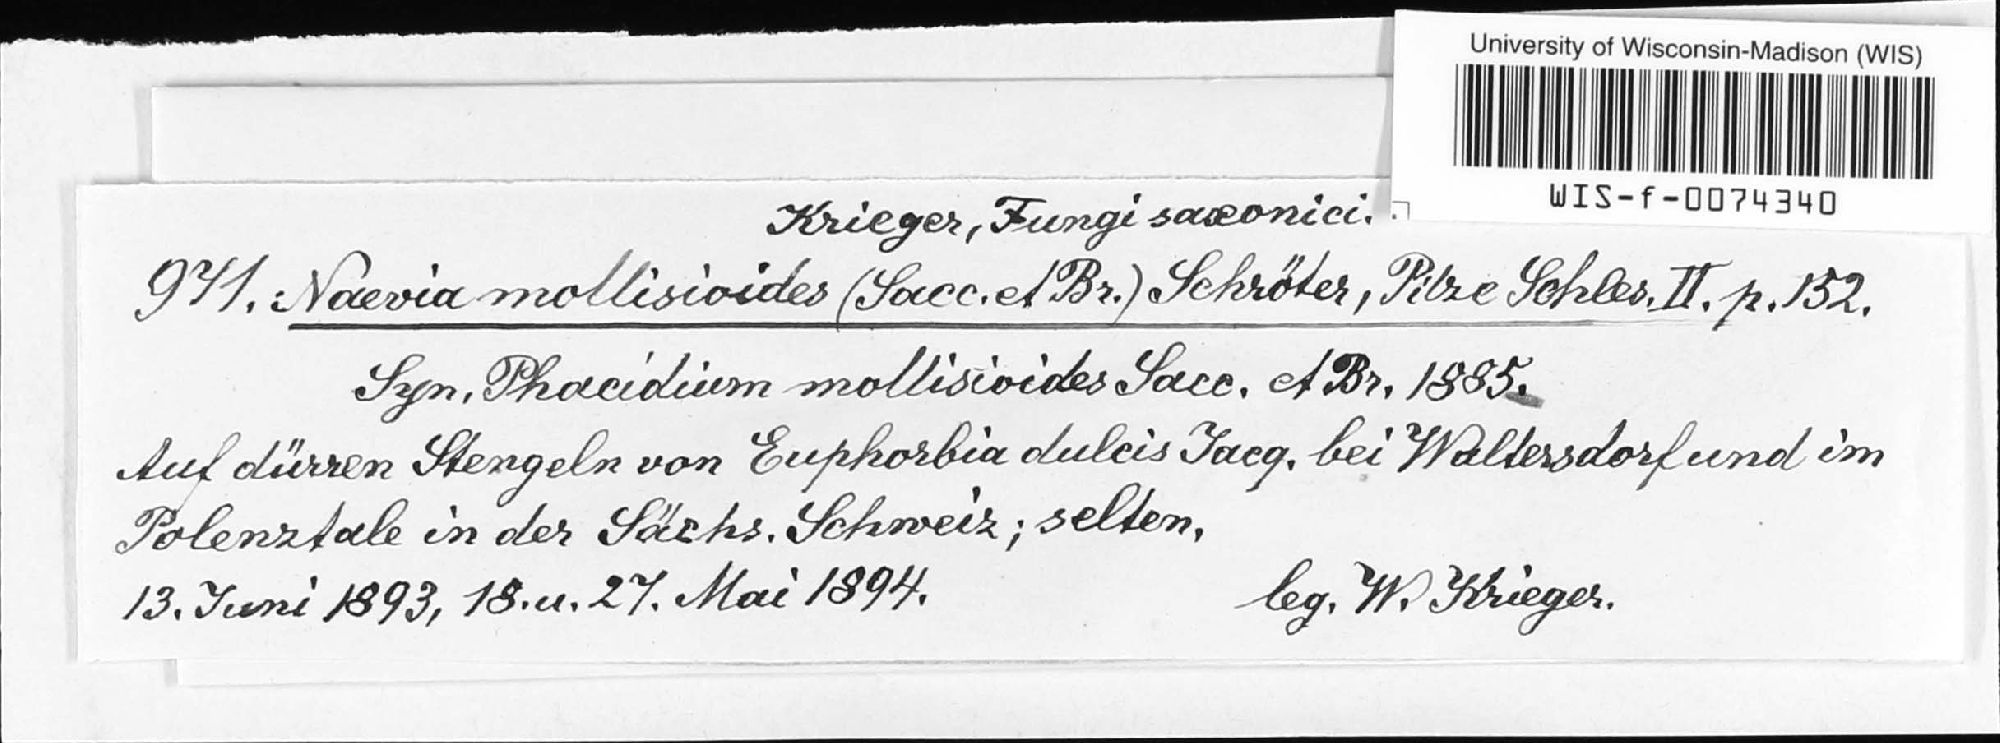 University of Wisconsin-Madison (WIS)
WIS-f-0074340
Krieger, Fungi saxonici.
971. Naevia mollisioides (Sacc. et Br.) Schröter, Pilze Schles. II. p. 152.
Syn. Phacidium mollisioides Sacc. et Br. 1885.
Auf dürren Stengeln von Euphorbia dulcis Jacq. bei Waltersdorf und im
Polenztale in der Sächs. Schweiz; selten.
13. Juni 1893, 18. u. 27. Mai 1894. leg. W. Krieger.